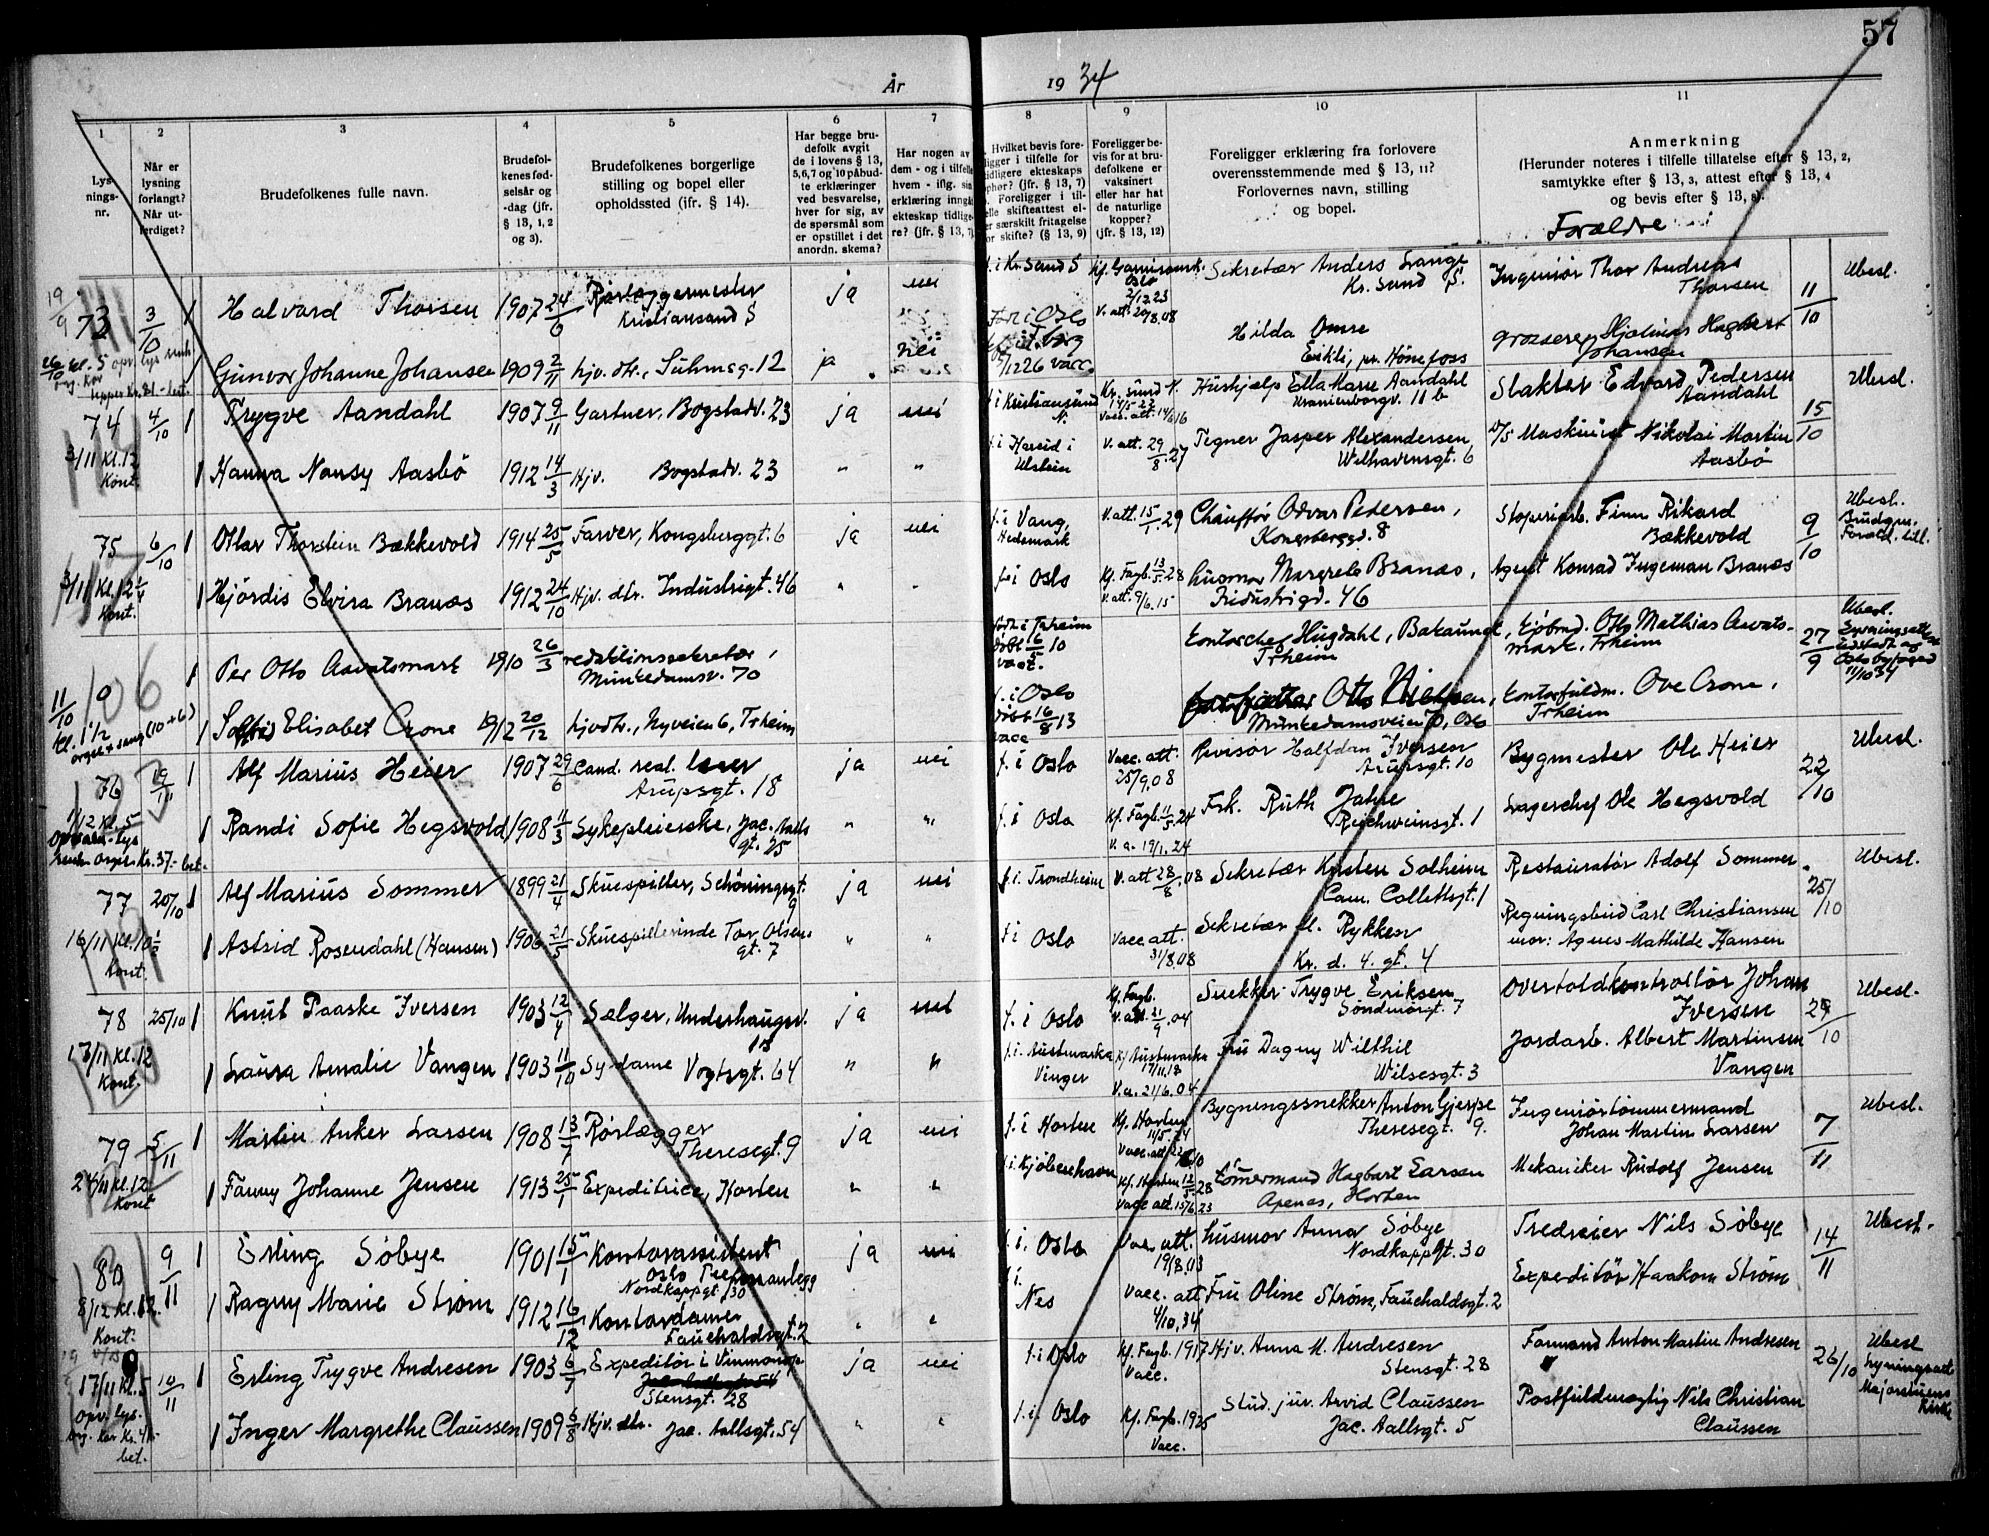 57
År 1934
1 2 3 4 5 6 7 8 9 10 11
Lys-
nings-
nr.
Når er
lysning
forlangt?
Når ut-
ferdiget?
Brudefolkenes fulle navn.
Brudefol-
kenes fød-
selsår og
-dag (jfr.
§ 13, 1, 2
og 3).
Brudefolkenes borgerlige
stilling og bopel eller
opholdssted (jfr. § 14).
Har begge bru-
defolk avgit
de i lovens § 13,
5, 6, 7 og 10 påbud-
te erklæringer
ved besvarelse,
hver for sig, av
de spørsmål som
er opstillet i det
anordn. skema?
Har nogen av
dem - og i tilfelle
hvem - iflg. sin
erklæring inngåt
ekteskap tidlige-
re? (jfr. § 13, 7)
Hvilket bevis fore-
ligger i tilfelle for
tidligere ekteskaps
ophør? (jfr. § 13, 7)
Foreligger i til-
felle skifteattest el-
ler særskilt fritagelse
for skifte? (§ 13, 9)
Foreligger be-
vis for at bru-
defolkene er
vaksinert
eller har hat
de naturlige
kopper?
(jfr. § 13, 12)
Foreligger erklæring fra forlovere
overensstemmende med § 13, 11?
Forlovernes navn, stilling
og bopel.
Anmerkning
(Herunder noteres i tilfelle tillatelse efter § 13, 2,
samtykke efter § 13, 3, attest efter § 13, 4
og bevis efter § 13, 8).
Forældre
19/9 73 3/10 1 Halvard Thorsen 1907 24/6 Rørleggermester ja nei f. i Kr.sand S Kf. Garnisonsk. Sekretær Anders Lange Ingeniør Thor Andreas Ubesl.
Kristiansand S Oslo 2/12 23 Kr. Sand S. Thorsen 11/10
V. att. 20/8.08
Hilda Omre Grosserer Hjalmar Hagbart
Eikli, pr. Hönefoss Johansen
1 Gunvor Johanne Johansen 1909 2/11 hjv. dtr., Suhmsg. 12 ja nei
74 4/10 1 Trygve Aandahl 1907 9/11 Gartner, Bogstadv. 23 ja nei f. i Kristiansund N. Kr.sund N. Hushjelp Edla Marie Aandahl Slakter Edvard Pedersen Ubesl.
Vacc. att. 14/6 16 Uranienborgv. 11 b Aandahl 15/10
3/11 Kl. 12
Kont. 1 Hanna Nansy Aasbö 1912 14/3 Hjv. Bogstadv. 23 " " f. i Hareid i V. att. 29/8.27 Tegner Jasper Alexandersen D/S Maskinist Nikolai Martin
Ulstein Welhavensgt. 6 Aasbö
75 6/10 1 Ottar Thorstein Bækkevold 1914 25/5 Farver, Kongsberggt. 6 ja nei f. i Vang, V. att. 15/1 29 Chauffør Odvar Pedersen, Stoperiarb. Finn Rikard Ubesl.
Hedemark Kongsberggt. 8 Bækkevold 9/10 Brudgm.
Foræld. till.
3/11 Kl. 12 1/4
Kont. 1 Hjördis Elvira Branæs 1912 24/10 Hjv. dtr. Industrigt. 46 " " f. i Oslo Kf. Fagb. 13/5.28 husmor Margrete Branæs, Agent Konrad Ingeman Branæs
V. att. 9/6.15 Industrigt. 46
11/10 0 1 Per Otto Aavatsmark 1910 26/3 redaktionssekretær, født i Trheim Kontorchef Hugdahl, Bakaunet, Ejbmd. Otto Mathias Aavats- 27/9 Ubesl.
Munkedamsv. 70 døbt 16/5 10 Trheim mark, Trheim Lysningsattest
vacc. Oslo byfoged
11/10 34
kl. 1 1/2 (10+6)
orgel + sang 1 Elisabet Crone 1912 20/12 hjvdtr., Nyveien 6, Trheim f. i Oslo forfatter Otto Nielsen, Kontorfuldm. Ove Crone,
døbt 16/8 13 Munkedamsveien 70, Oslo Trheim
vacc
76 19/10 1 Alf Marius Heier 1907 29/6 Cand. real. ja nei f. i Oslo Vacc. att. Revisor Halfdan Iversen Bygmester Ole Heier 22/10 Ubesl.
Arupsgt. 18 25/9.08 Arupsgt. 10
1/12 Kl. 5 1 Randi Sofie Hegsvold 1908 11/3 Sykepleierske, Jac. Aalls " " f. i Oslo Kf. Fagb. 11/5.24 Frk. Ruth Jahre Lagerchef Ole Hegsvold
gt. 25 V. a. 19/1.24 Reichweinsgt. 1
Kr. 37.- bet.
77 20/10 1 Alf Marius Sommer 1899 21/4 Skuespiller, Schöningsgt. ja nei f. i. Trondheim V. att 28/8.08 Sekretær Kristen Solheim Restauratør Adolf Sommer 25/10 Ubesl.
9 Cam. Collettsgt. 1
16/11 Kl. 10 1/2
Kont. 1 Astrid Rosendahl (Hansen) 1906 21/5 Skuespillerinde Tor Olsens " " f i Oslo Vacc. att. Sekretær M. Rykken Regningsbud Carl Christiansen
gt. 7 31/8.08 Kr. d. 4. gt. 4 mor: Agnes Mathilde Hansen
78 25/10 1 Knut Paaske Iversen 1903 12/4 Sælger, Underhaugsv. ja nei f. i Oslo Kf. Fagb. Snekker Trygve Eriksen Overtoldkontrollør Johan Ubesl.
15 V. att. 21/9.04 Söndmörsgt. 7 Iversen 29/10
17/11 Kl. 12
Kont. 1 Laura Amalie Vangen 1903 11/10 Sydame Vogtsgt. 64 " " f. i. Austmarka Kf Austmarka Fru Dagny Wilthil Jordarb. Albert Martinsen
Vinger 17/11.18 Wilsesgt. 3 Vangen
V. a. 21/6.04
79 5/11 1 Martin Anker Larsen 1908 13/7 Rørlægger ja nei f. i Horten Kf. Horten Bygningssnekker Anton Gjerpe Ingeniørtömmermand 7/11 Ubesl.
Theresegt. 9 Vacc. att. Theresegt. 9. Johan Martin Larsen
24/11 Kl. 12
Kont 1 Fanny Johanne Jensen 1913 25/1 Expeditrice, Horten " " f. i. Kjöbenhavn Kf. Horten 12/5 28 Tömermand Hagbart Larsen Mekaniker Rudolf Jensen
Vacc att. 15/6.23 Apenes, Horten
80 9/11 1 Erling Söbye 1901 15/1 Kontorassistent ja nei f. i. Oslo Vacc. att. husmor Anna Söbye Tredreier Nils Söbye 14/11 Ubesl.
Nordkappgt. 30 19/8.03 Nordkappgt. 30
8/12 Kl. 12
Kont. 1 Ragny Marie Ström 1912 16/12 Kontordame " " f. i. Nes Vacc. att. Fru Oline Ström, Fauchaldsgt. 2 Expeditör Haakon Ström
Fauchaldsgt. 2 4/10.34
17/11 Kl. 5 10/11 1 Erling Trygve Andresen 1903 6/7 Expeditör i Vinmonop. ja nei f. i Oslo Kf. Fagb. 1917 Hjv. Anna M. Andresen Formand Anton Martin Andresen 26/10 Ubesl
Stensgt. 28 Vacc. Stensgt. 28 Lysningsatt
Majorstuens
Kirke
Opv. lys.
bet. 1 Inger Margrethe Claussen 1909 6/8 Hjv. dtr. Jac. Aallsgt. 54 " " f. i. Oslo Kf. Fagb. 1925 Stud. jur. Arvid Claussen Postfuldmægtig Nils Christian
Vacc. Jac. Aallsgt. 5 Claussen